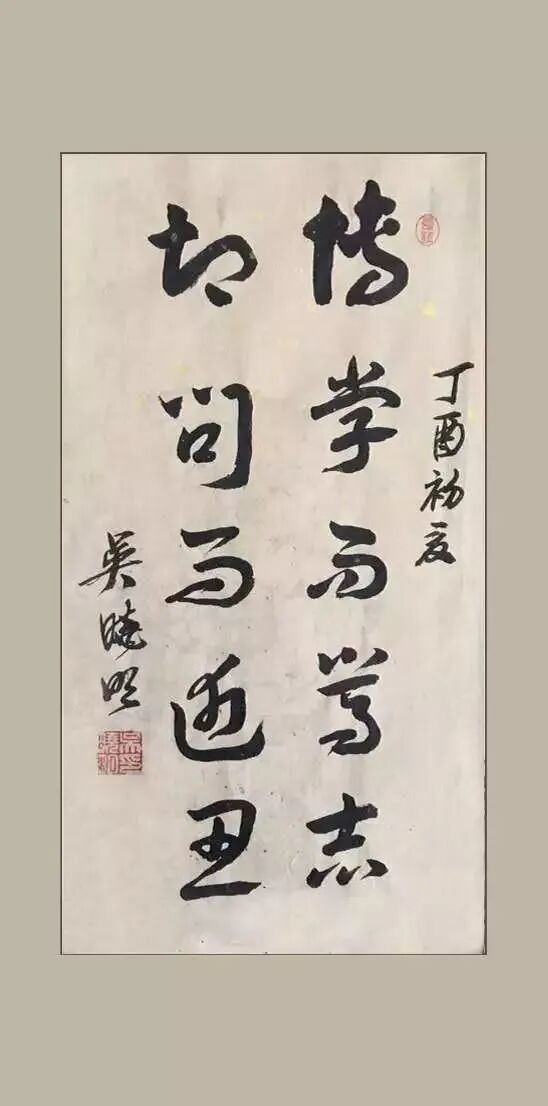 丁酉初夏
博学而笃志
切问而近思
吴晓明